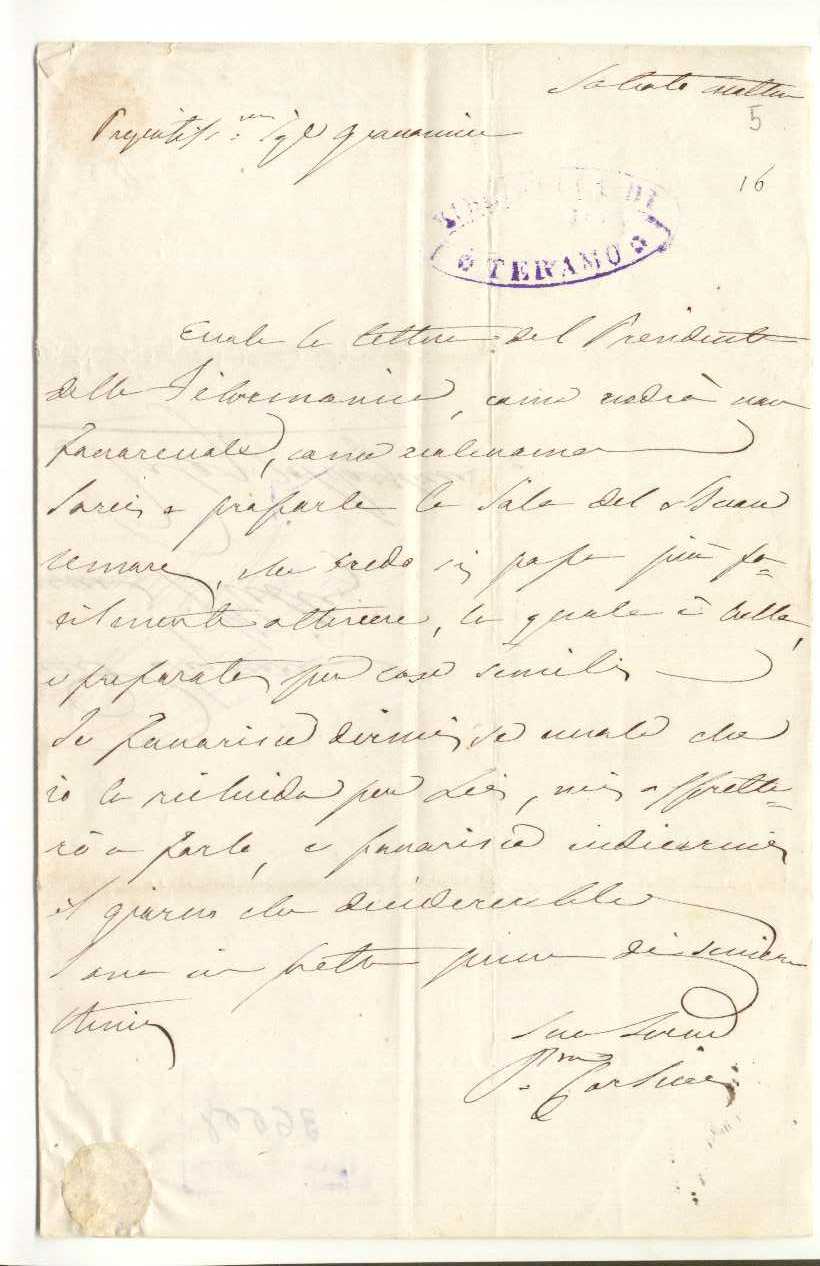 Sabato mattina
5
Pregiatiss:mo Sigr Giannina
16
DI
TERAMO
Eccole la lettera del Presidente
della Filarmonica, come vedrà non
favorevole, come volevamo
Sarei a proporle la Sala del Buon
umore, che credo si possa più fa=
cilmente ottenere, la quale è bella,
e preparata per cose simili
Se favorisce dirmi se vuole che
io la richieda per Lei, mi affrette=
rò a farlo, e favorisca indicarmi
il giorno che desiderebbe
Sono in fretta pieno di sincera
stima
Suo Servo
Pne Corsini